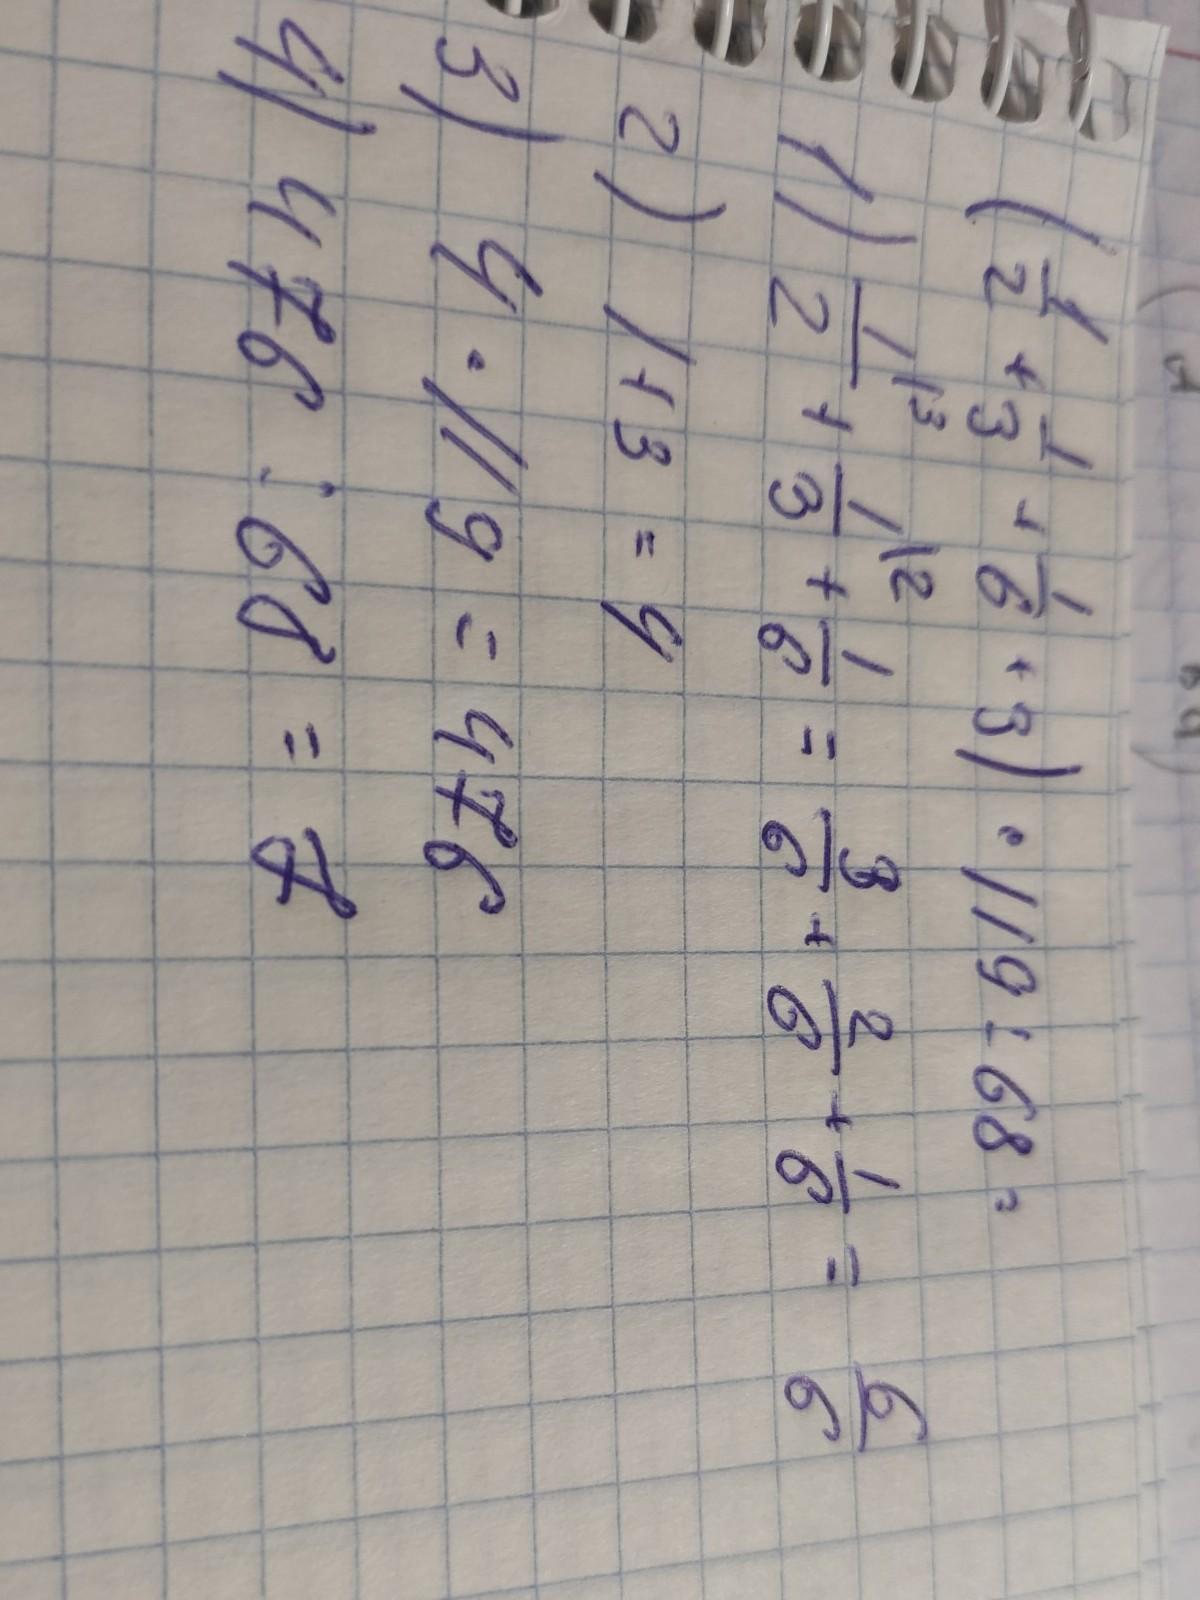 (1/2 + 1/3 + 1/6 + 3) · 119 : 68 =
1) 1/2 |3 + 1/3 |2 + 1/6 = 3/6 + 2/6 + 1/6 = 6/6
2) 1+3 = 4
3) 4 · 119 = 476
4) 476 : 68 = 7